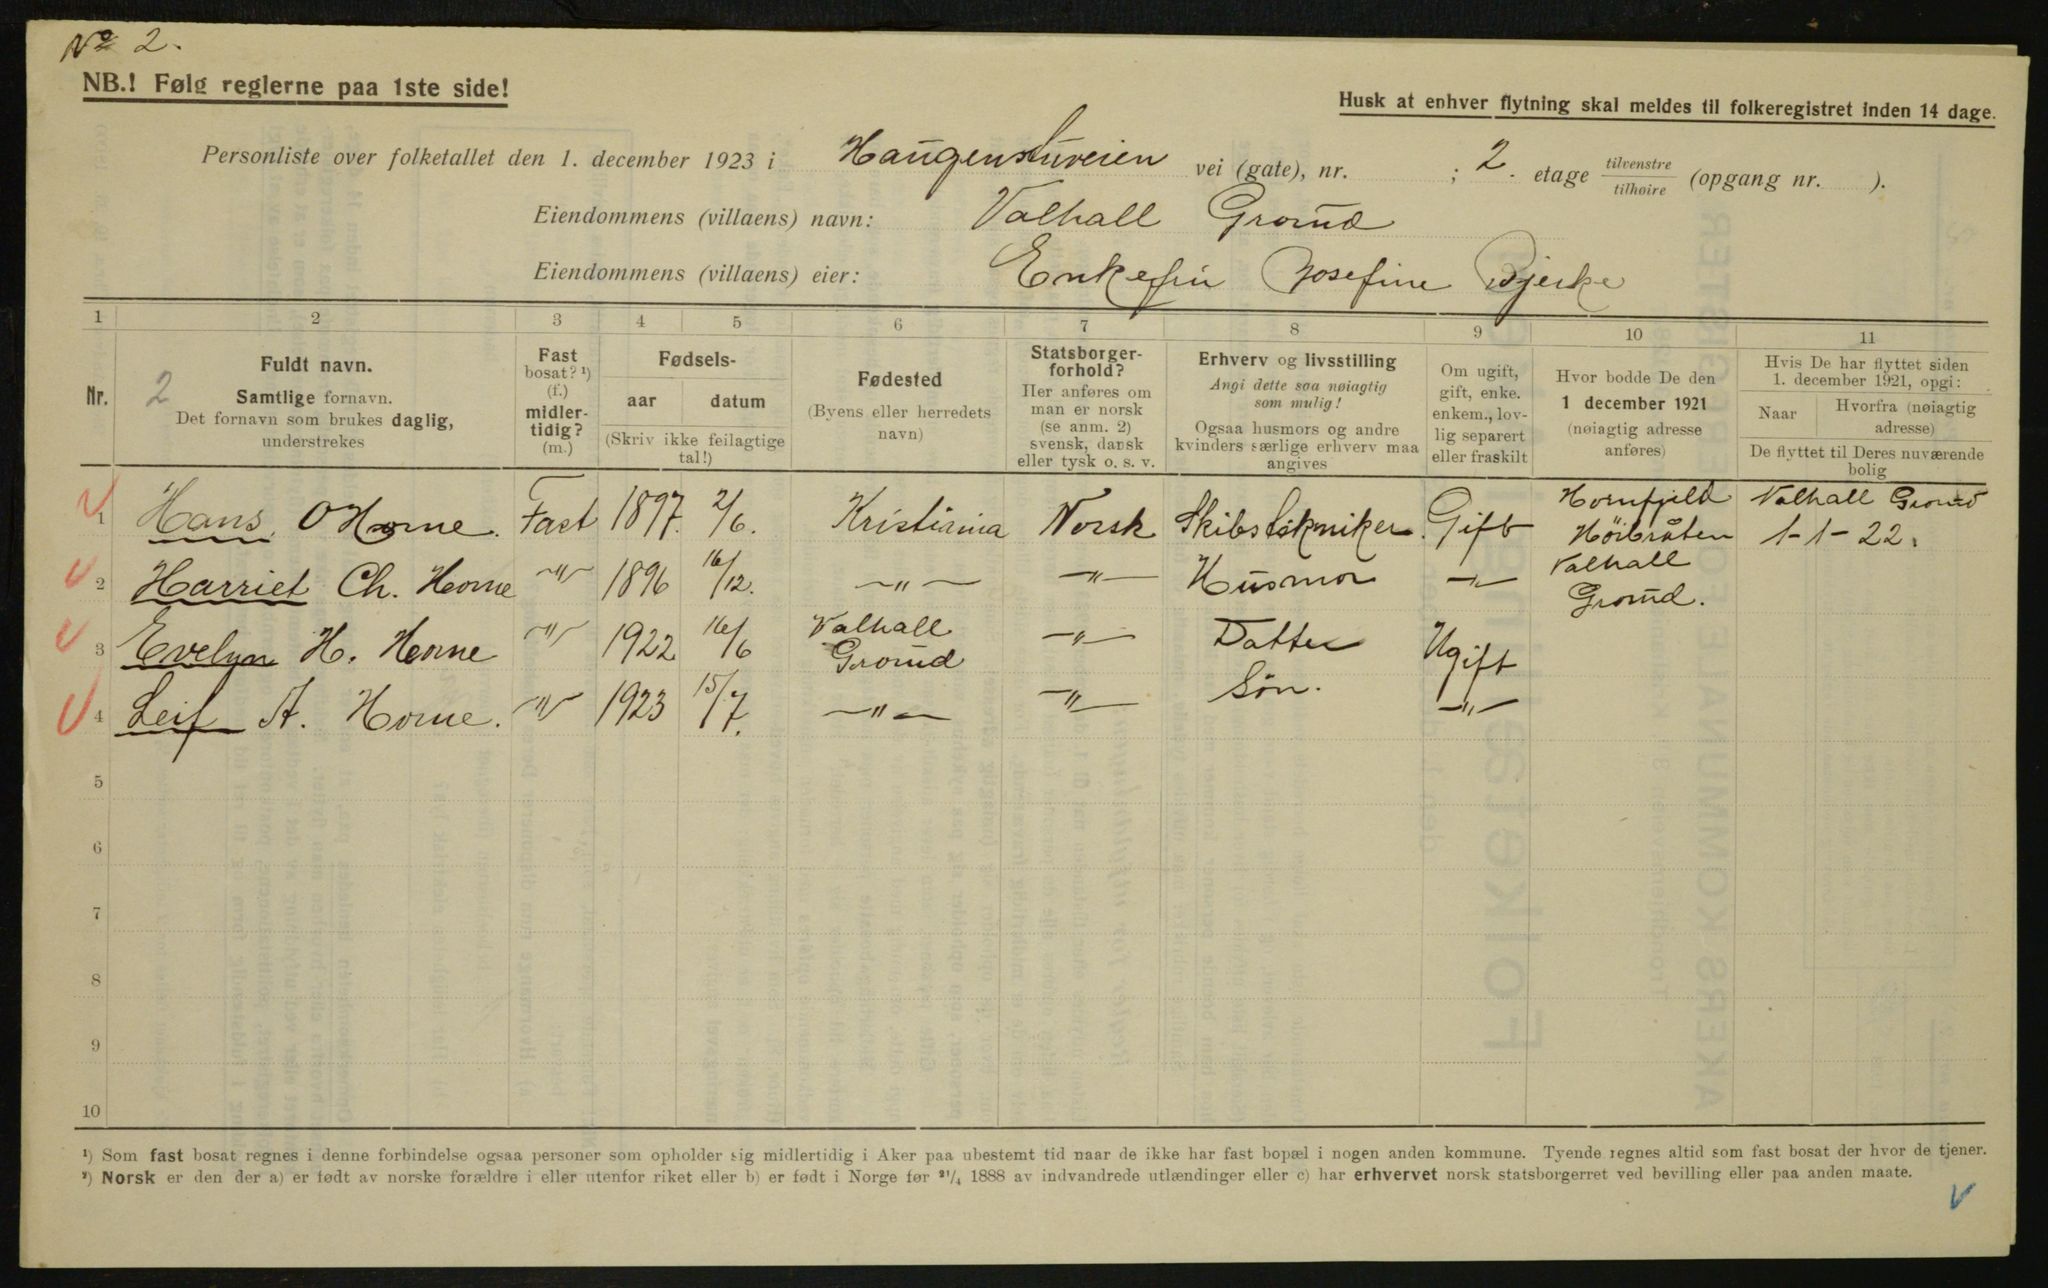 No 2.
NB.! Følg reglerne paa 1ste side!
Husk at enhver flytning skal meldes til folkeregistret inden 14 dage.
Personliste over folketallet den 1. december 1923 i Haugenstuveien vei (gate), nr. ; 2. etage tilvenstre tilhøire (opgang nr. ).
Eiendommens (villaens) navn: Valhall Grorud
Eiendommens (villaens) eier: Enkefru Josefine Bjerke
1 2 3 4 5 6 7 8 9 10 11
Nr.
2
Fuldt navn.
Samtlige fornavn.
Det fornavn som brukes daglig,
understrekes
Fast
bosat? ¹)
(f.)
midler-
tidig?
(m.)
Fødsels-
aar datum
(Skriv ikke feilagtige
tal!)
Fødested
(Byens eller herredets
navn)
Statsborger-
forhold?
Her anføres om
man er norsk
(se anm. 2)
svensk, dansk
eller tysk o. s. v.
Erhverv og livsstilling
Angi dette saa nøiagtig
som mulig!
Ogsaa husmors og andre
kvinders særlige erhverv maa
angives
Om ugift,
gift, enke.
enkem., lov-
lig separert
eller fraskilt
Hvor bodde De den
1 december 1921
(nøiagtig adresse
anføres)
Hvis De har flyttet siden
1. december 1921, opgi:
Naar Hvorfra (nøiagtig
adresse)
De flyttet til Deres nuværende
bolig
1 Hans O Horne. Fast 1897. 2/6. Kristiania Norsk Skibstekniker. Gift Hornfjeld Hörbråten Valhall Grorud 1-1-22.
2 Harriet Ch. Horne -"- 1896 16/12. -"- -"- Husmor -"- Valhall Grorud.
3 Evelyn H. Horne -"- 1922 16/6 Valhall Grorud -"- Datter Ugift
4 Leif A. Horne. -"- 1923 15/7. -"- -"- Sön. -"-
5
6
7
8
9
10
¹) Som fast bosat regnes i denne forbindelse ogsaa personer som opholder sig midlertidig i Aker paa ubestemt tid naar de ikke har fast bopæl i nogen anden kommune. Tyende regnes altid som fast bosat der hvor de tjener.
²) Norsk er den der a) er født av norske forældre i eller utenfor riket eller b) er født i Norge før ²¹/₄ 1888 av indvandrede utlændinger eller c) har erhvervet norsk statsborgerret ved bevilling eller paa anden maate.